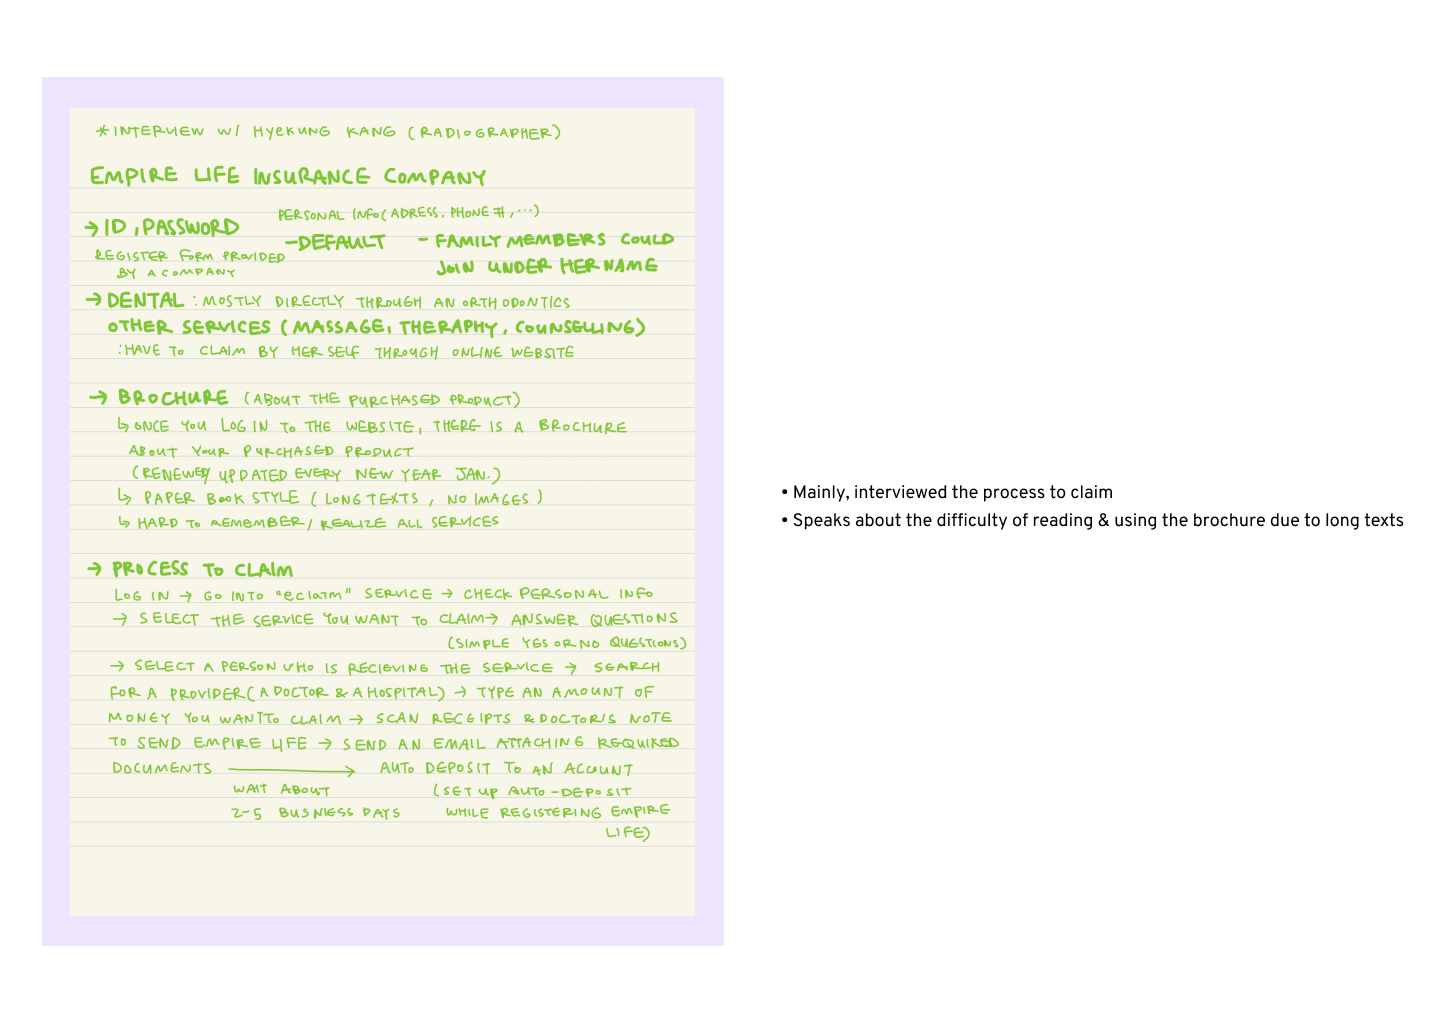 *INTERVIEW W/ HYEKUNG KANG (RADIOGRAPHER)
EMPIRE LIFE INSURANCE COMPANY
PERSONAL INFO(ADRESS, PHONE #, ...)
→ ID, PASSWORD
-DEFAULT - FAMILY MEMBERS COULD
REGISTER FORM PROVIDED
JOIN UNDER HER NAME
BY A COMPANY
→ DENTAL : MOSTLY DIRECTLY THROUGH AN ORTHODONTICS
OTHER SERVICES (MASSAGE, THERAPHY, COUNSELLING)
:HAVE TO CLAIM BY HERSELF THROUGH ONLINE WEBSITE
→ BROCHURE (ABOUT THE PURCHASED PRODUCT)
↳ ONCE YOU LOG IN TO THE WEBSITE, THERE IS A BROCHURE
ABOUT YOUR PURCHASED PRODUCT
(RENEWED/UPDATED EVERY NEW YEAR JAN.)
↳ PAPER BOOK STYLE (LONG TEXTS, NO IMAGES)
↳ HARD TO REMEMBER/REALIZE ALL SERVICES
→ PROCESS TO CLAIM
LOG IN → GO INTO "eclaim" SERVICE → CHECK PERSONAL INFO
→ SELECT THE SERVICE YOU WANT TO CLAIM → ANSWER QUESTIONS
(SIMPLE YES OR NO QUESTIONS)
→ SELECT A PERSON WHO IS RECIEVING THE SERVICE → SEARCH
FOR A PROVIDER(A DOCTOR & A HOSPITAL) → TYPE AN AMOUNT OF
MONEY YOU WANT TO CLAIM → SCAN RECEIPTS & DOCTOR'S NOTE
TO SEND EMPIRE LIFE → SEND AN EMAIL ATTACHING REQUIRED
DOCUMENTS → AUTO DEPOSIT TO AN ACCOUNT
WAIT ABOUT (SET UP AUTO-DEPOSIT
2-5 BUSNIESS DAYS WHILE REGISTERING EMPIRE
LIFE)
• Mainly, interviewed the process to claim
• Speaks about the difficulty of reading & using the brochure due to long texts